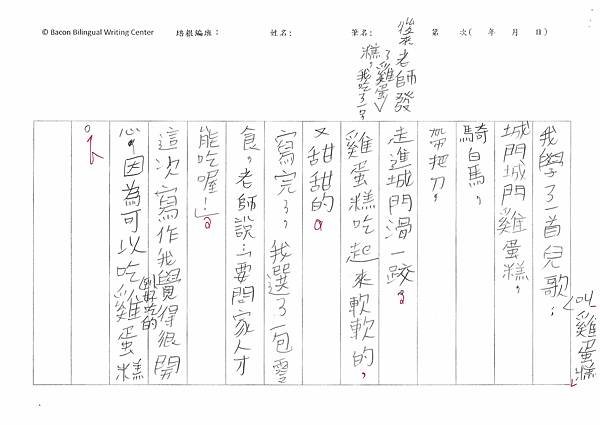 © Bacon Bilingual Writing Center 培根編班： 姓名： 筆名： 第 次( 年 月 日)
我學了一首兒歌：叫雞蛋糕
城門城門雞蛋糕，
騎白馬，
帶把刀，
走進城門滑一跤。
後來老師發了雞蛋糕，我吃了一口
雞蛋糕吃起來軟軟的，
又甜甜的。
寫完了，我選了一包零
食，老師說：要問家人才
能吃喔！」
這次寫作我覺得很開
心，因為可以吃到好吃的雞蛋糕
。